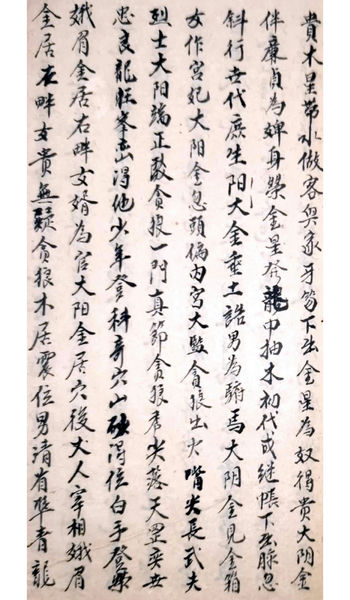 貴木星帶水做客與象牙笏下出金星為奴得貴大阴金
伴廉貞為婢身榮金星登龍中抽木初代或继帳下出脈忽
斜行女代庶生阳大金垂土誥男為駙馬大阴金見金箱
女作宮妃大阳金忽頭偏内宮大監貪狼出火嘴尖長武夫
烈士大阳端正貪狼一門真節貪狼秀尖落天罡奕世
忠良龍旺峯出得他少年登科奇穴山破得位白手登
娥眉金居右畔女婿為官大阳金居穴後丈人宰相娥眉
金居左畔女貴無疑貪狼木居震位男清有準青龍